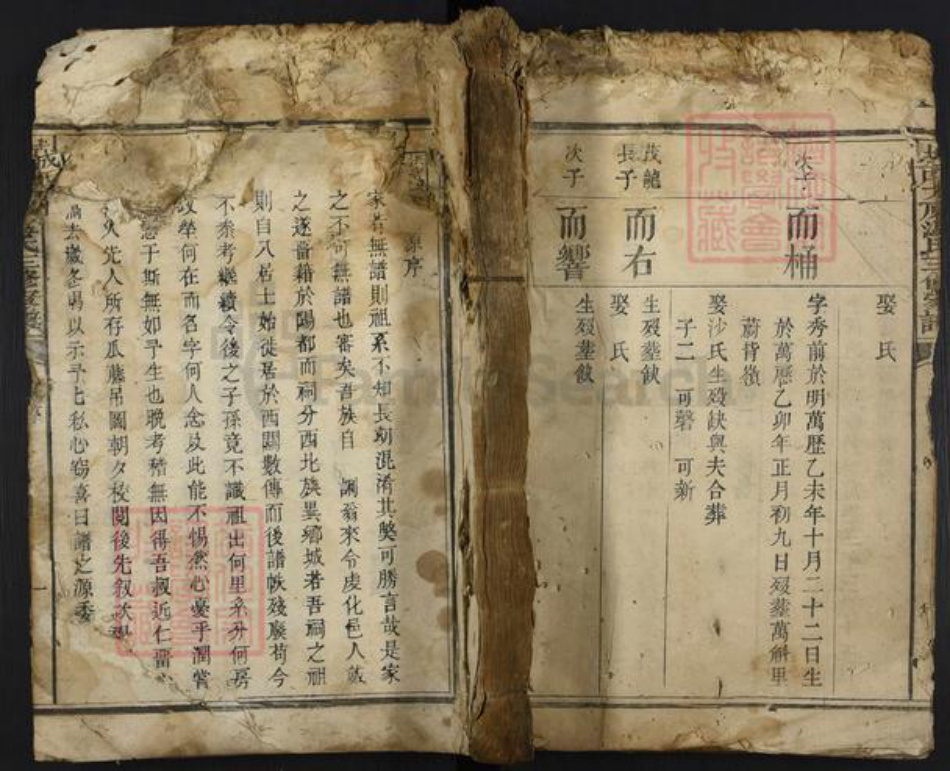 娶 氏
次子
而桶
字秀前於明萬歷乙未年十月二十二日生
於萬歷乙卯年正月初九日歿塟萬斛里
蔚背嶺
娶沙氏生歿缺與夫合葬
子二 可磬 可新
茂龍
長子
而右
生歿塟缺
娶 氏
次子
而響
生歿塟缺
序
家若無譜則祖系不知長幼混淆其獘可勝言哉是家
之不可無譜也審矣吾族自 調翁來令虔化邑人
之遂畱籍於陽都而祠分西北族異鄉城若吾祠之祖
則自八居士始徙居於西關數傳而後譜帙殘廢苟今
不叅考繼續令後之子孫竟不識祖出何里系分何房
坟塋何在而名字何人念及此能不惕然心憂乎潤嘗
志于斯無如予生也晚考稽無因得吾叔近仁畱
先人所存瓜藤吊圖朝夕校閱後先叙次
去歲冬易以示予七私心竊喜曰譜之源委